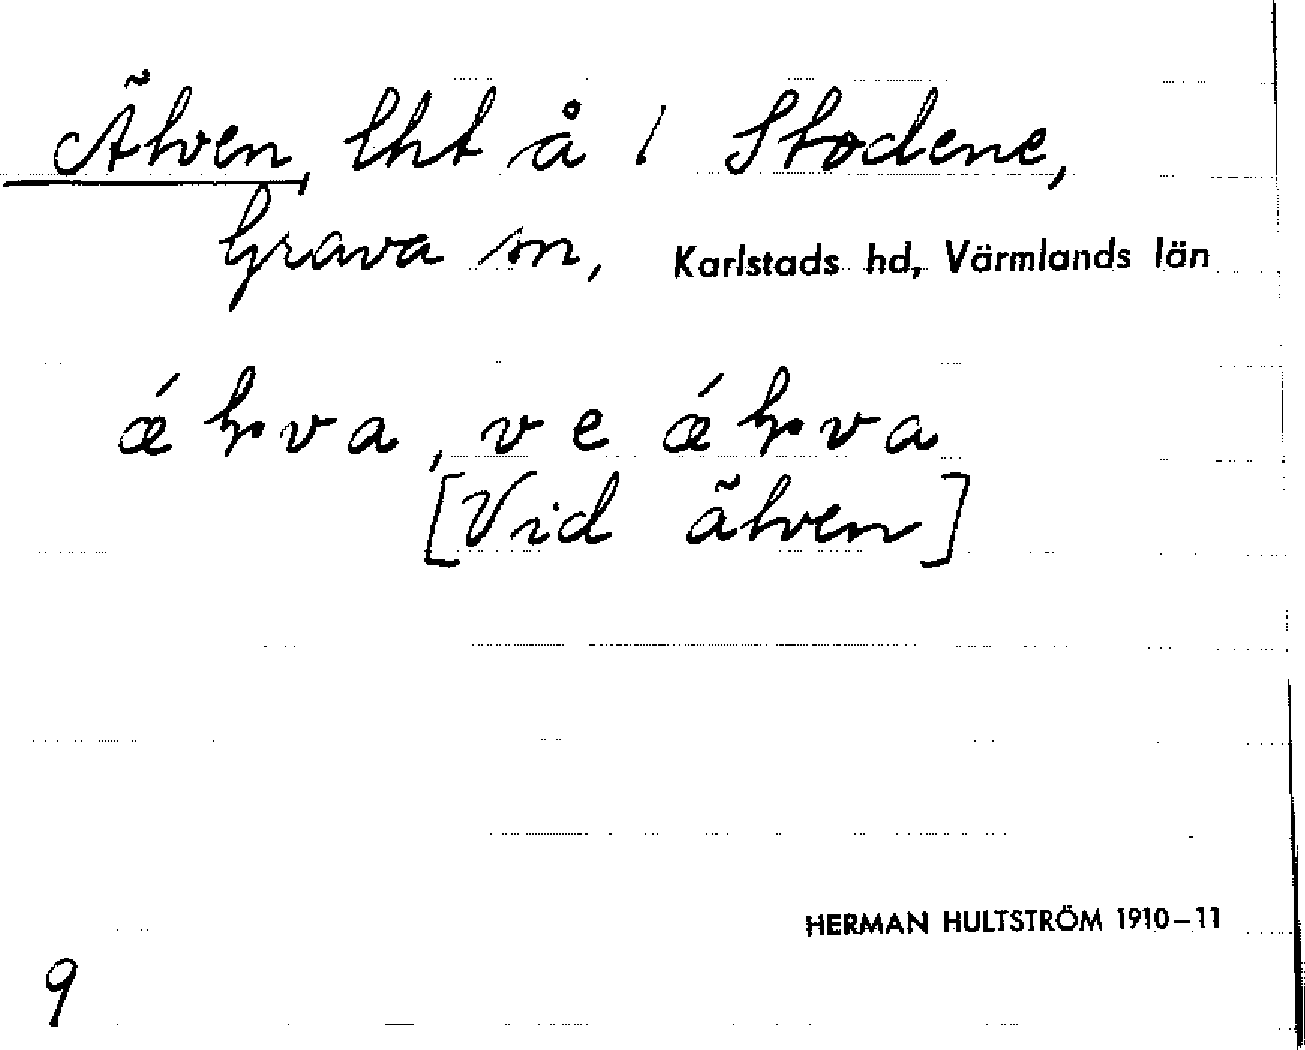 Älven, lht å / Stodene,
Grava sn, Karlstads hd, Värmlands län
ǽ ɽ v a, v e ǽ ɽ v a
[Vid älven]
HERMAN HULTSTRÖM 1910–11
9